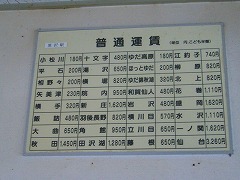 普通運賃
小松川 180円 十文字 480円 ゆだ高原 180円 江釣子 740円
平石 200円 湯沢 650円 ほっとゆだ 200円 柳原 820円
相野々 200円 横堀 820円 ゆだ錦秋湖 320円 北上 820円
矢美津 230円 院内 950円 和賀仙人 480円 花巻 1,110円
横手 320円 新庄 1,620円 岩沢 480円 盛岡 1,620円
飯詰 480円 羽後長野 820円 横川目 570円 水沢 1,110円
大曲 650円 角館 950円 立川目 650円 一ノ関 1,620円
秋田 1,450円 田沢湖 1,280円 藤根 650円 仙台 3,260円